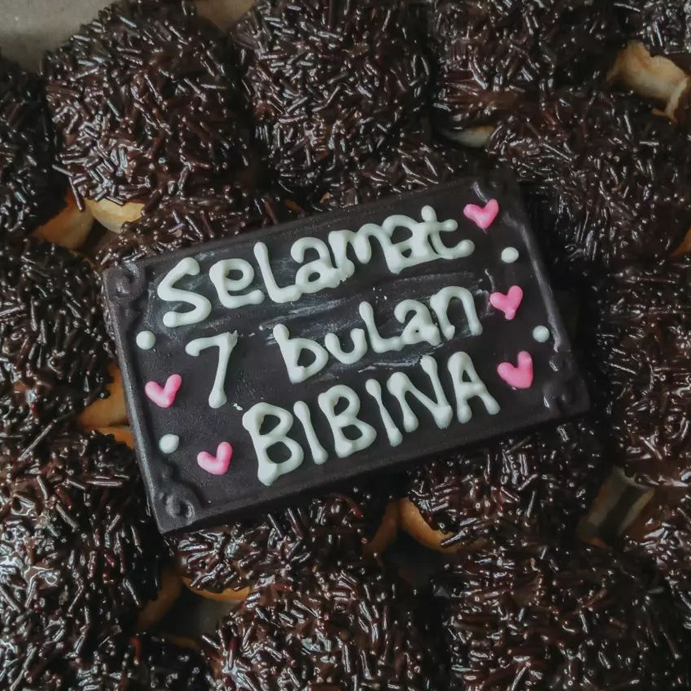 Selamat
7 bulan
BIBINA